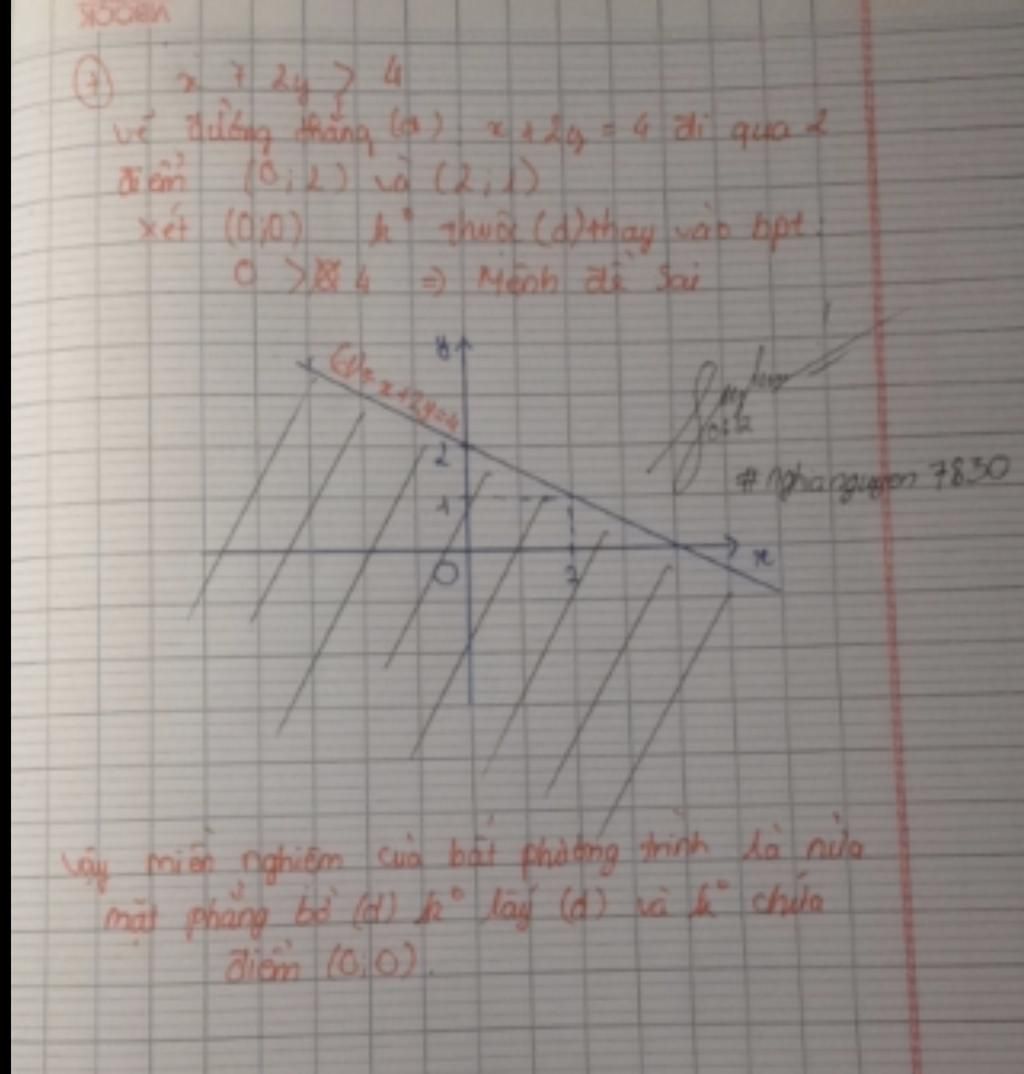 ⑦ x + 2y > 4
vẽ đường thẳng (d) x + 2y = 4 đi qua 2
điểm (0;2) và (2,1)
xét (0;0) k° thuộc (d) thay vào bpt
0 > 4 => Mệnh đề sai
y
(d): x+2y=4
2
1
#nghanguyen7830
O
2
x
Vậy miền nghiệm của bất phương trình là nửa
mặt phẳng bờ (d) k° lấy (d) và k° chứa
điểm (0,0).